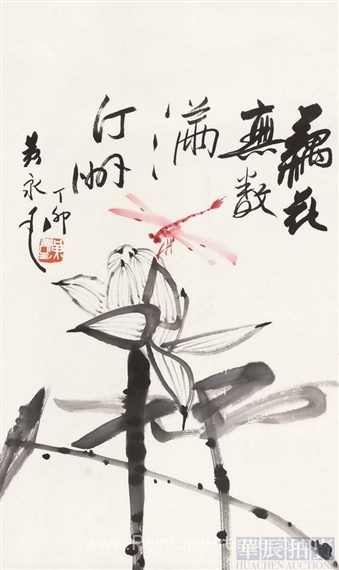 藕花
無數
滿
汀洲
丁卯
黃永玉
華辰拍賣
HUACHEN AUCTION